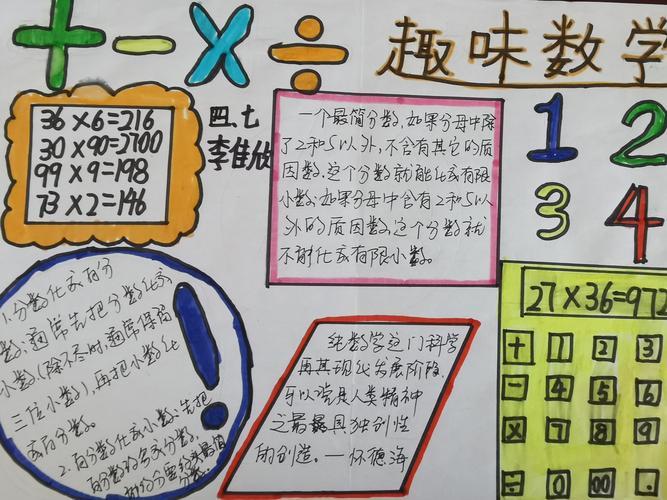 + - × ÷
趣味数学
36×6=216
30×90=2700
99×9=198
73×2=146
四、七
李佳欣
一个最简分数,如果分母中除
了2和5以外,不含有其它的质
因数,这个分数就能化成有限
小数;如果分母中含有2和5以
外的质因数,这个分数就
不能化成有限小数。
1 2
3 4
1.分数化成百分
数:通常先把分数化成
小数(除不尽时,通常保留
三位小数),再把小数化
成百分数。
2.百分数化成小数:先把
百分数
分数。
纯数学这门科学
再其现代发展阶段,
可以说是人类精神
之最具独创性
的创造。—怀德海
27×36=972
+ 1 2 3
- 4 5 6
× 7 8 9
÷ 0 00 .